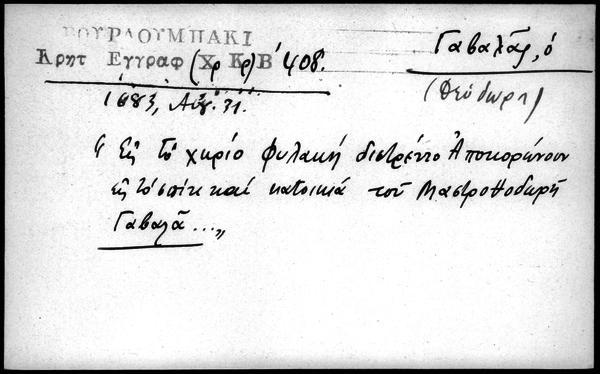 ΒΟΥΡΔΟΥΜΠΑΚΙ
Κρητ Εγγραφ (Χρ Κρ) Β' 408.
Γαβαλᾶς, ὁ
(Θεόδωρη)
1683, Αὐγ. 31.
"Εἰς τὸ χωρίο Φυλακή διστρέντο Ἀποκορώνου
εἰς τὸ σπίτι καί κατοικιά τοῦ Μαστροθοδωρῆ
Γαβαλᾶ ..."